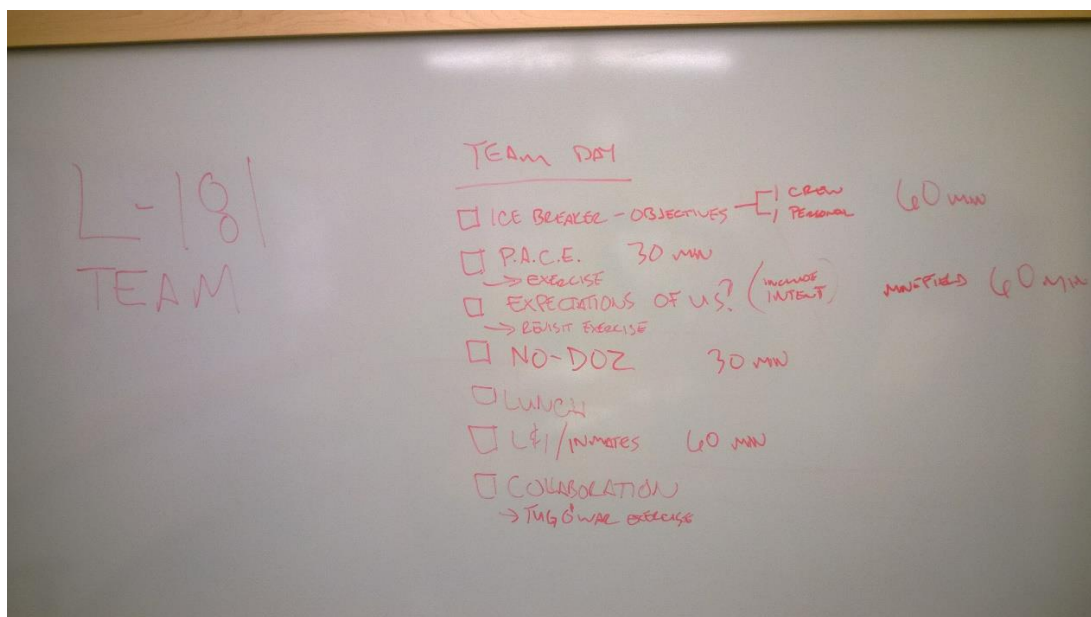 L-181
TEAM
TEAM DAY
ICE BREAKER - OBJECTIVES 1 CREW 60 MIN
1 PERSONAL
P.A.C.E. 30 MIN
→ EXERCISE
EXPECTATIONS OF US? (INCLUDE INTENT) MINEFIELD 60 MIN
→ REVISIT EXERCISE
NO-DOZ 30 MIN
LUNCH
L&I/INMATES 60 MIN
COLLABORATION
→ TUG O' WAR EXERCISE